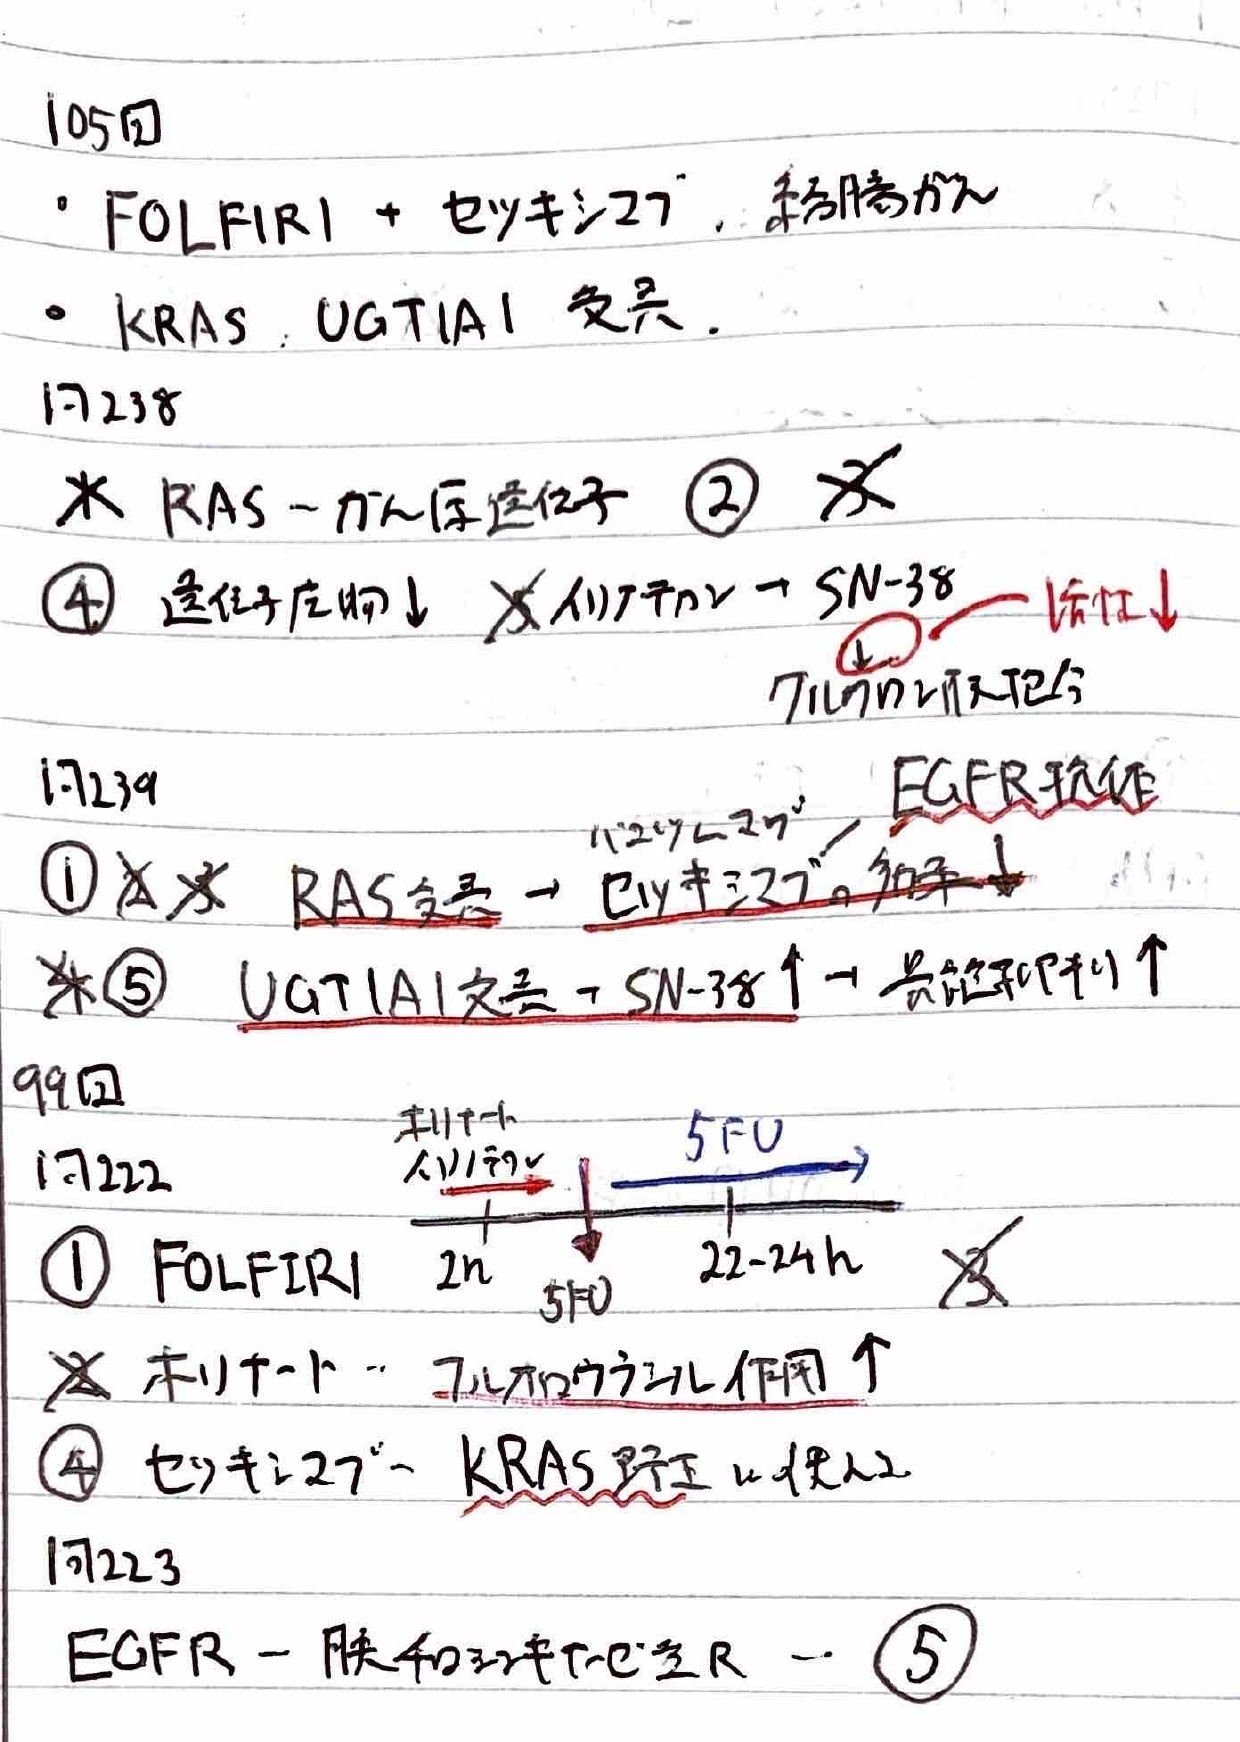 105回
・FOLFIRI + セツキシマブ、結腸がん
・KRAS、UGT1A1 変異.
問238
✗ RAS - がん原遺伝子 ② 3
④ 遺伝子産物↓ 5 イリノテカン → SN-38 活性↓
↓
グルクロン酸抱合
問239
EGFR抗体
パニツムマブ
① 2 3 RAS変異 → セツキシマブの効率↓
4 ⑤ UGT1A1変異 → SN-38↑ → 骨髄抑制↑
99回
ホリナート
イリノテカン
5FU
問222
① FOLFIRI 2h 5FU 22-24h 3
2 ホリナート - フルオロウラシル作用↑
④ セツキシマブ - KRAS野生に使える
問223
EGFR - 膜チロシンキナーゼ型R - ⑤